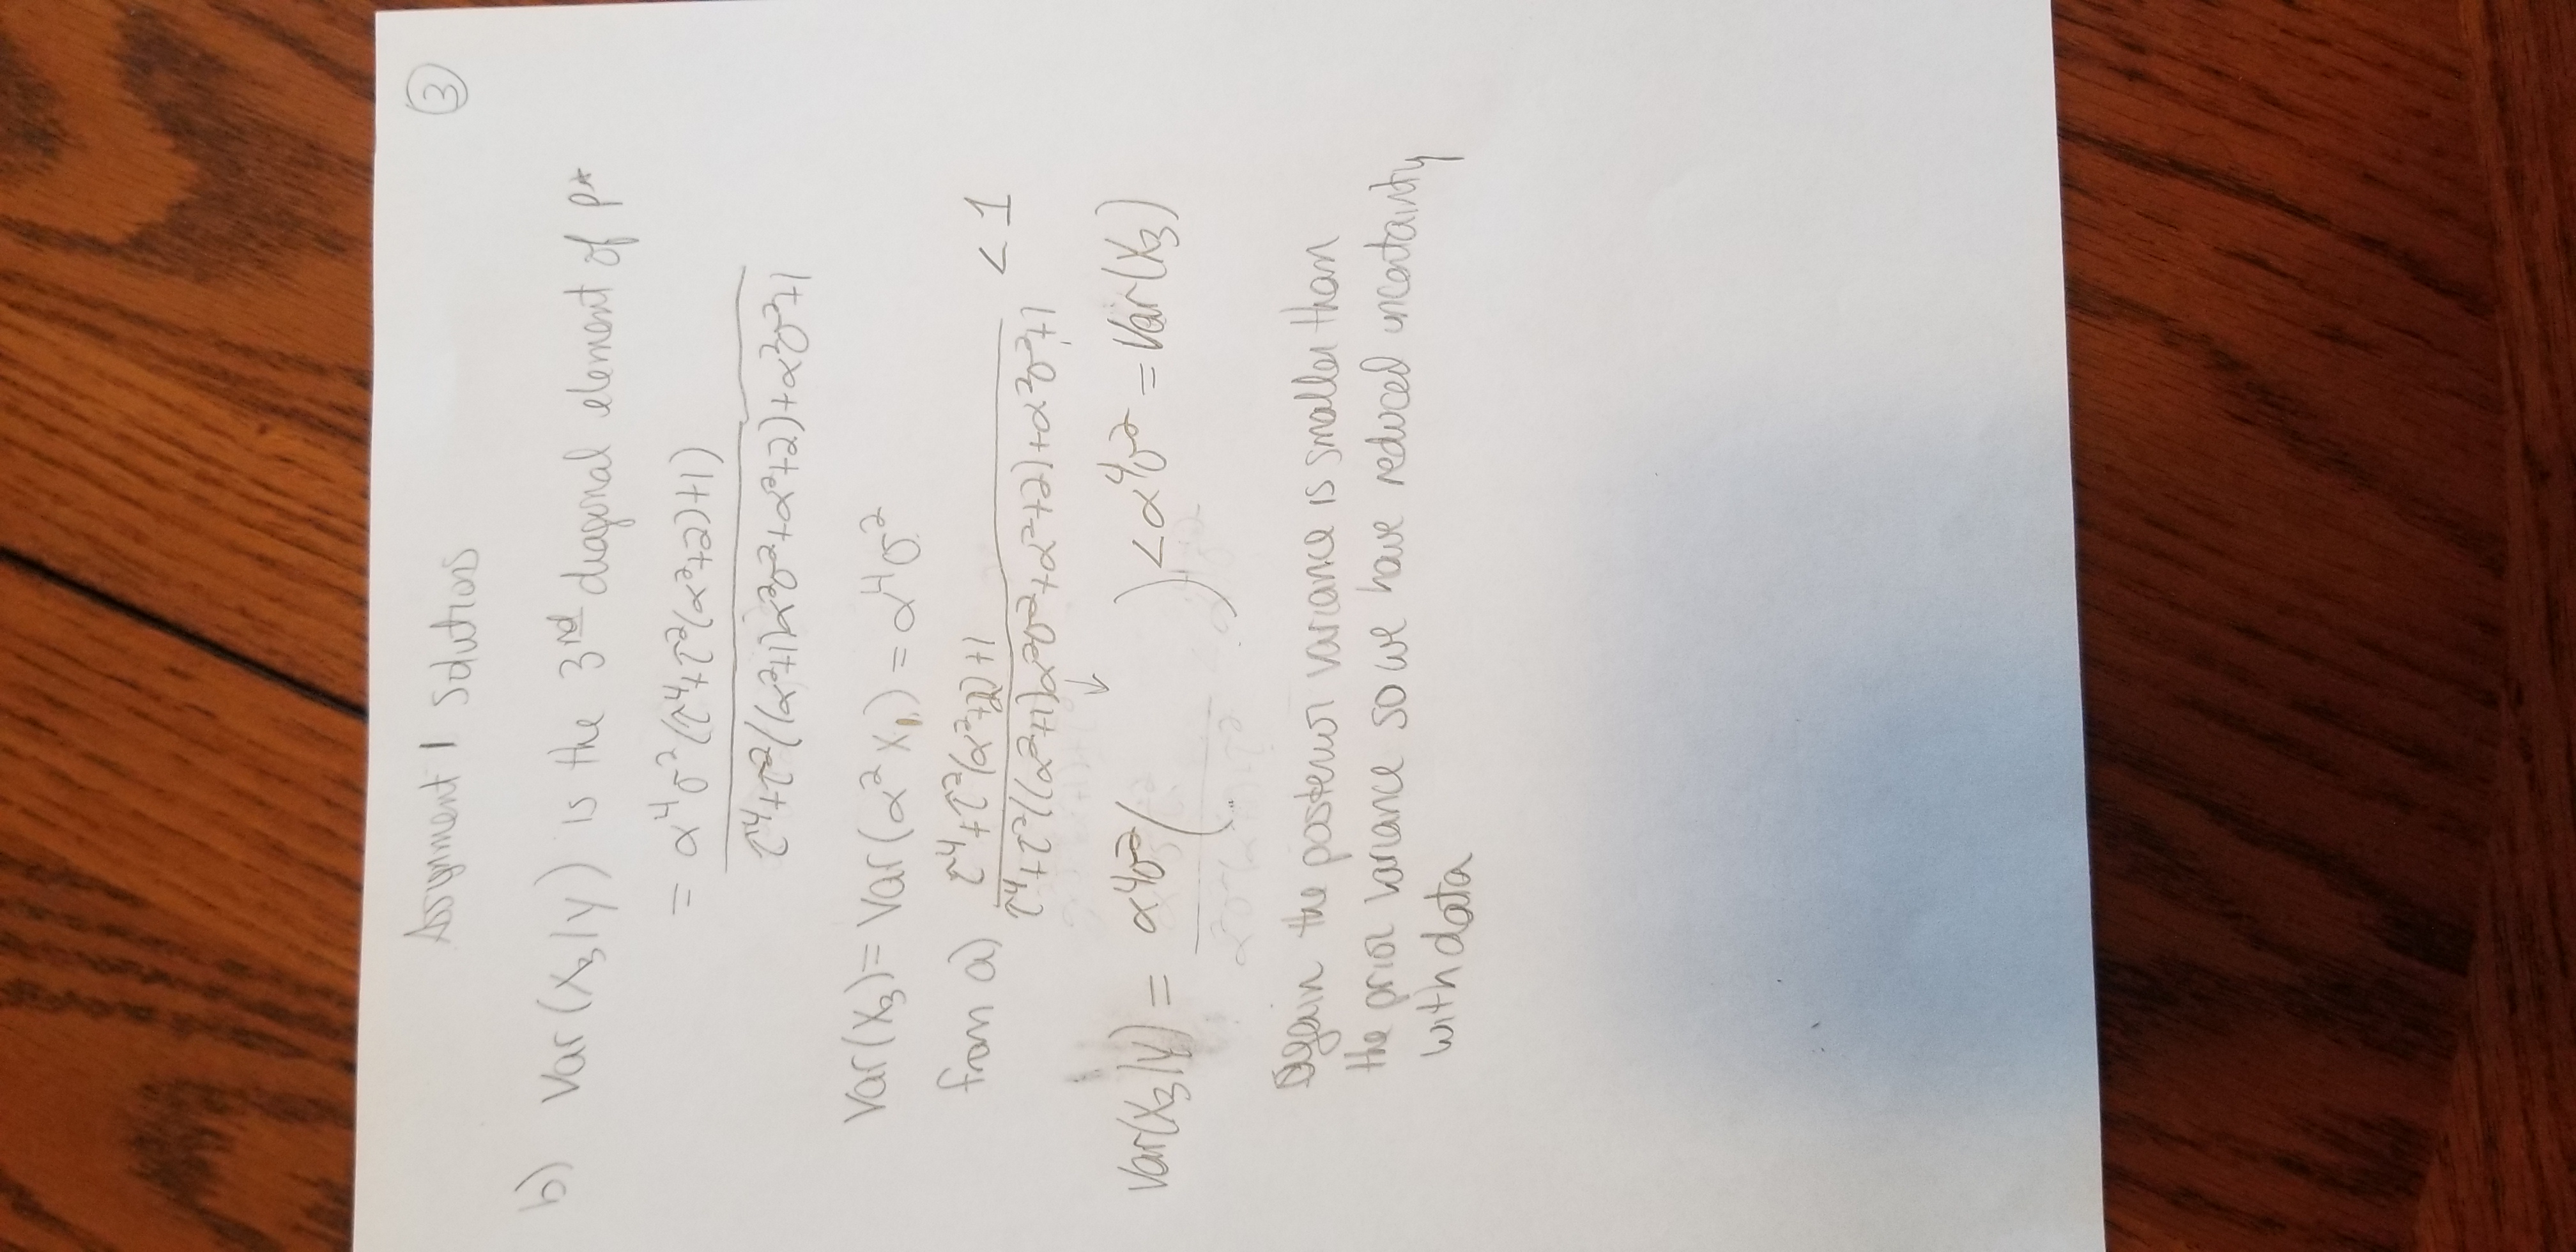 Assignment 1 Solutions
③
b) Var(X₃|y) is the 3ʳᵈ diagonal element of P*
= α⁴σ²(τ⁴+τ²(α²+2)+1)
τ⁴+τ²((α²+1)α²σ²+α²+2)+α²σ²+1
Var(X₃) = Var(α² X₁) = α⁴σ²
from a) τ⁴+τ²(α²+2)+1 < 1
τ⁴+τ²((α²+1)α²σ²+α²+2)+α²σ²+1
↓
Var(X₃|y) = α⁴σ²( ) < α⁴σ² = Var(X₃)
Again the posterior variance is smaller than
the prior variance so we have reduced uncertainty
with data